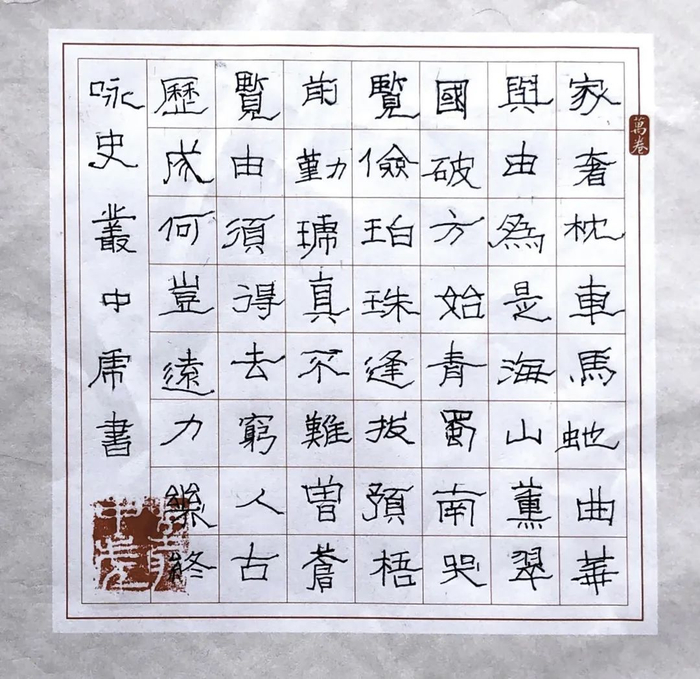 咏史
歷覽前覽國與家
成由勤儉破由奢
何須琥珀方爲枕
豈得真珠始是車
遠去不逢青海馬
力窮難拔蜀山虵
幾人曾預南薰曲
終古蒼梧哭翠華
叢中虎書
萬卷